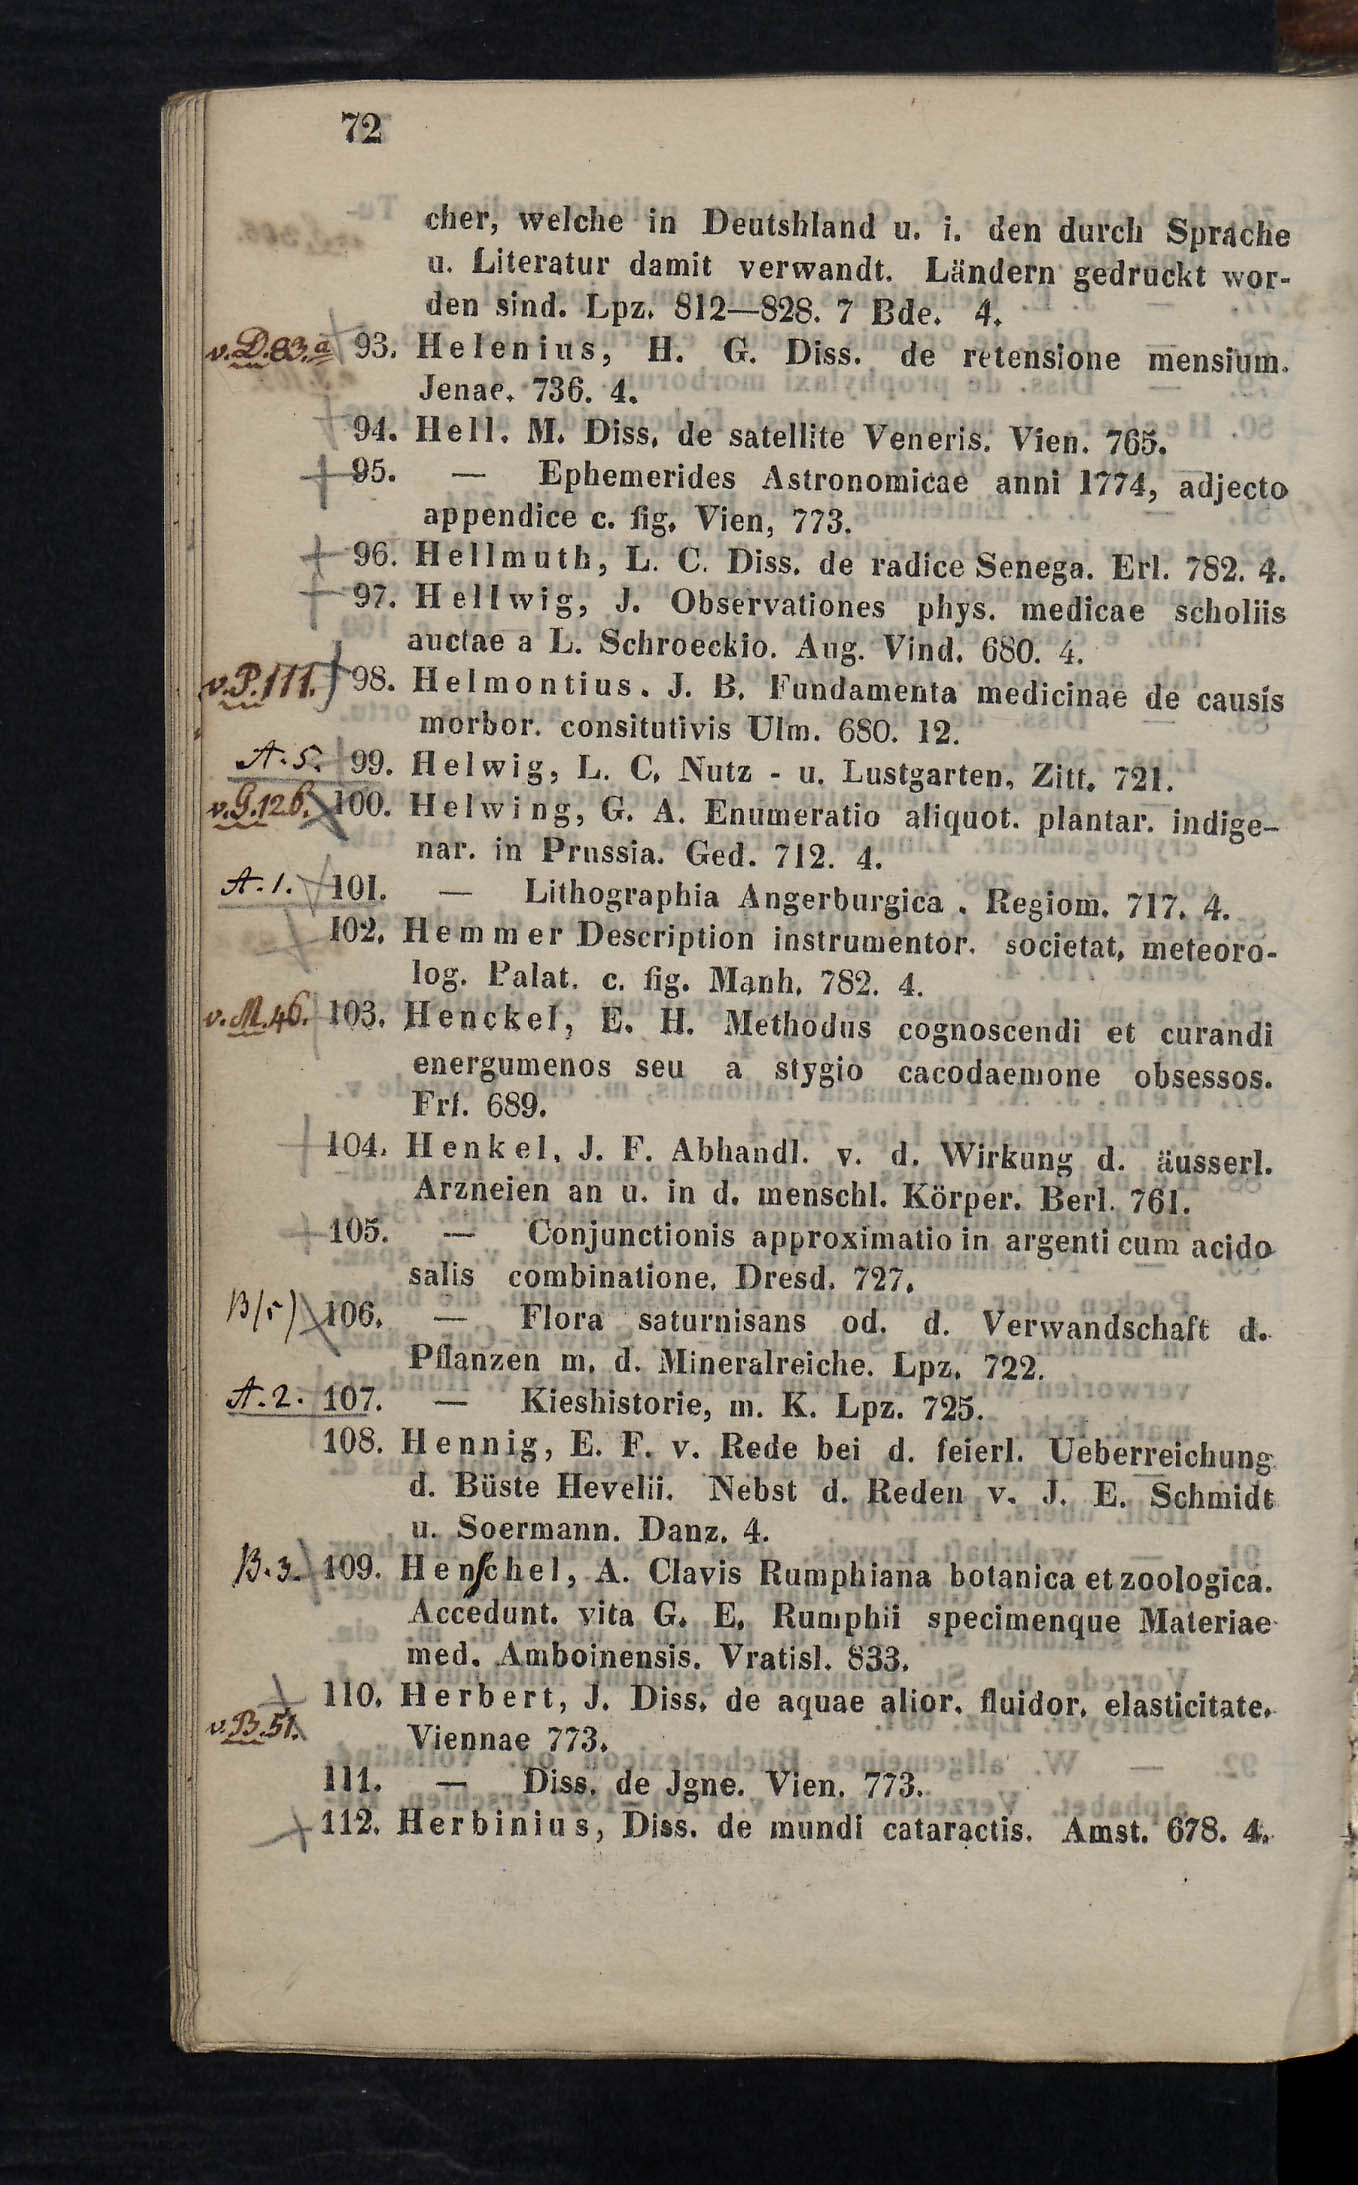 72
cher, welche in Deutshland u. i. den durch Sprache
u. Literatur damit verwandt. Ländern gedruckt wor-
den sind. Lpz. 812—828. 7 Bde. 4.
v.D.83.a 93. Helenius, H. G. Diss. de retensione mensium.
Jenae. 736. 4.
94. Hell. M. Diss. de satellite Veneris. Vien. 765.
95. — Ephemerides Astronomicae anni 1774, adjecto
appendice c. fig. Vien, 773.
96. Hellmuth, L. C. Diss. de radice Senega. Erl. 782. 4.
97. Hellwig, J. Observationes phys. medicae scholiis
auctae a L. Schroeckio. Aug. Vind. 680. 4.
v.P.111. 98. Helmontius. J. B. Fundamenta medicinae de causis
morbor. consitutivis Ulm. 680. 12.
A.5. 99. Helwig, L. C. Nutz - u. Lustgarten, Zitt. 721.
v.G.126. 100. Helwing, G. A. Enumeratio aliquot. plantar. indige-
nar. in Prussia. Ged. 712. 4.
A.1. 101. — Lithographia Angerburgica . Regiom. 717. 4.
102. Hemmer Description instrumentor. societat, meteoro-
log. Palat. c. fig. Manh. 782. 4.
v.M.46. 103. Henckel, E. H. Methodus cognoscendi et curandi
energumenos seu a stygio cacodaemone obsessos.
Frf. 689.
104. Henkel, J. F. Abhandl. v. d. Wirkung d. äusserl.
Arzneien an u. in d. menschl. Körper. Berl. 761.
105. — Conjunctionis approximatio in argenti cum acido
salis combinatione. Dresd. 727.
B/5) 106. — Flora saturnisans od. d. Verwandschaft d.
Pflanzen m. d. Mineralreiche. Lpz. 722.
A.2. 107. — Kieshistorie, m. K. Lpz. 725.
108. Hennig, E. F. v. Rede bei d. feierl. Ueberreichung
d. Büste Hevelii. Nebst d. Reden v. J. E. Schmidt
u. Soermann. Danz. 4.
B.3. 109. Henschel, A. Clavis Rumphiana botanica et zoologica.
Accedunt. vita G. E. Rumphii specimenque Materiae
med. Amboinensis. Vratisl. 833.
110. Herbert, J. Diss. de aquae alior. fluidor. elasticitate.
v.B.51. Viennae 773.
111. — Diss. de Jgne. Vien. 773.
112. Herbinius, Diss. de mundi cataractis. Amst. 678. 4.